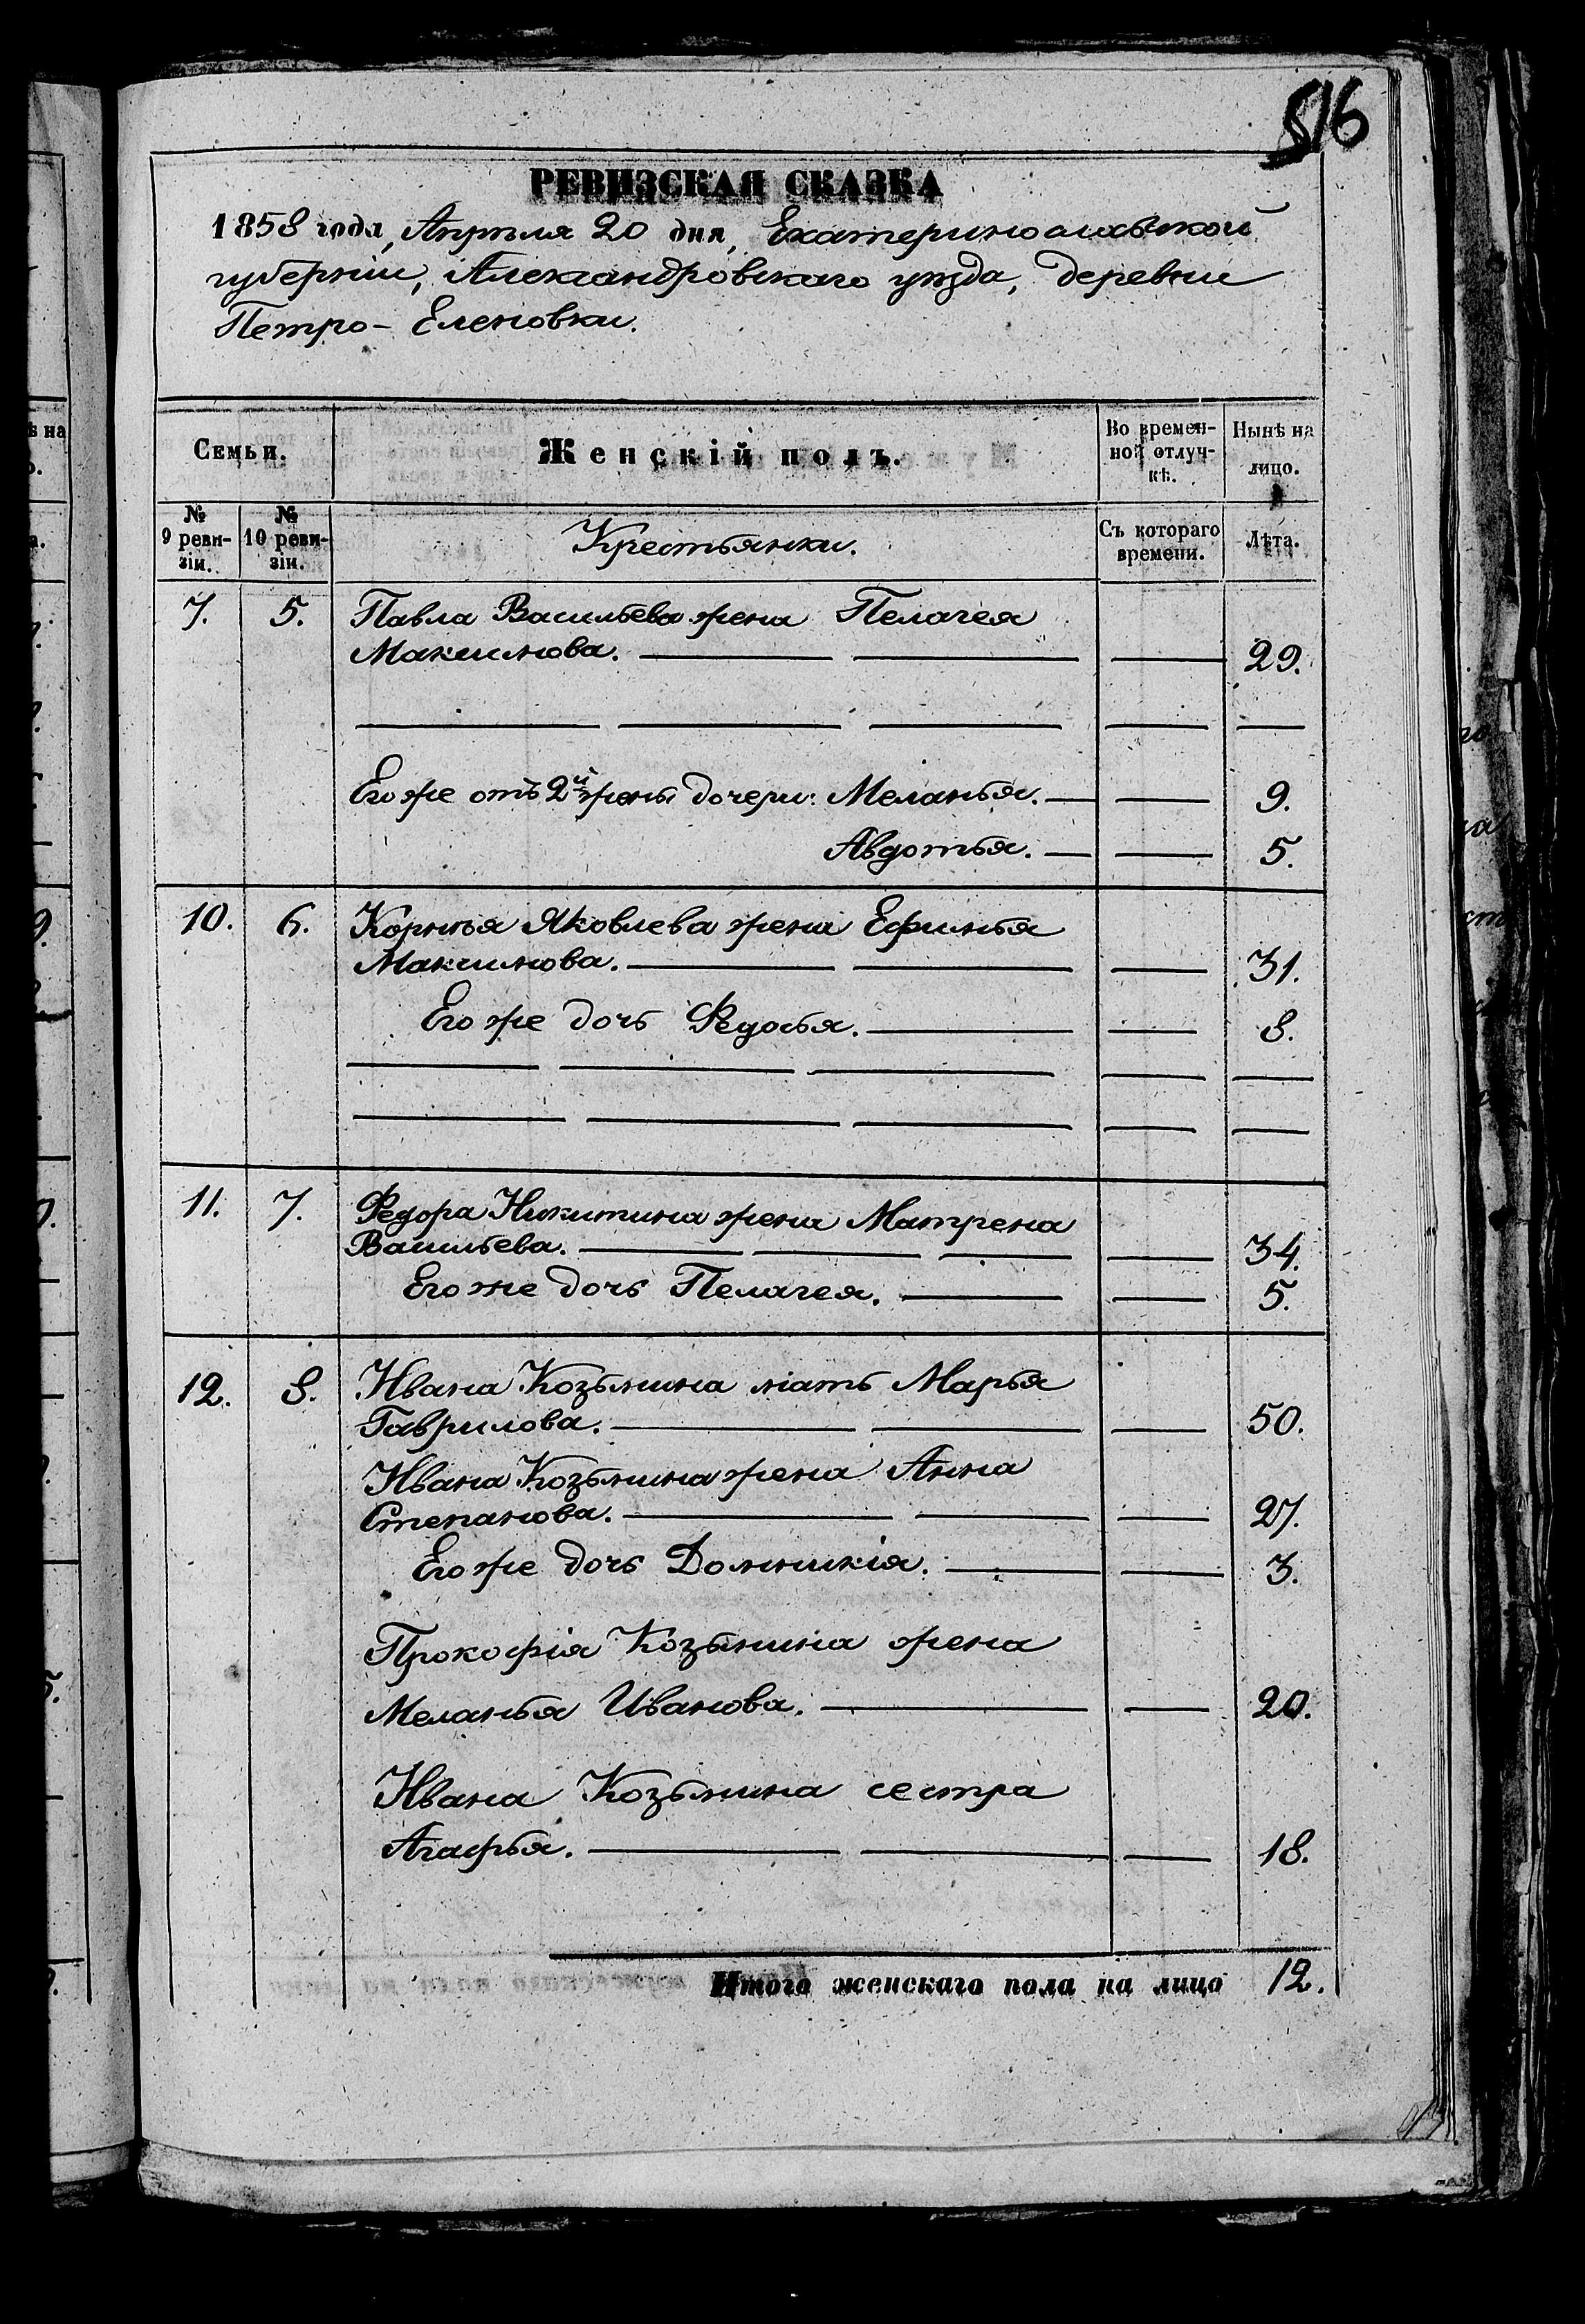 516
РЕВИЗСКАЯ СКАЗКА
1858 года, Апрѣля 20 дня, Екатеринославской
губерніи, Александровскаго уѣзда, деревни
Петро-Еленовки.
Семьи. Женскій полъ. Во времен-ной отлуч-кѣ. Нынѣ на лицо.
№ 9 реви-зіи. № 10 реви-зіи. Крестьянки. Съ котораго времени. Лѣта.
7. 5. Павла Васильева жена Пелагея
Максимова. 29.
Его же отъ 2й жены дочери: Меланья. 9.
Авдотья. 5.
10. 6. Корнѣя Яковлева жена Ефимья
Максимова. 31.
Его же дочь Федосья. 8.
11. 7. Федора Никитина жена Матрена
Васильева. 34.
Его же дочь Пелагея. 5.
12. 8. Ивана Козьмина мать Марья
Гаврилова. 50.
Ивана Козьмина жена Анна
Степанова. 27.
Его же дочь Домникія. 3.
Прокофія Козьмина жена
Меланья Иванова. 20.
Ивана Козьмина сестра
Агафья. 18.
Итого женскаго пола на лицо 12.